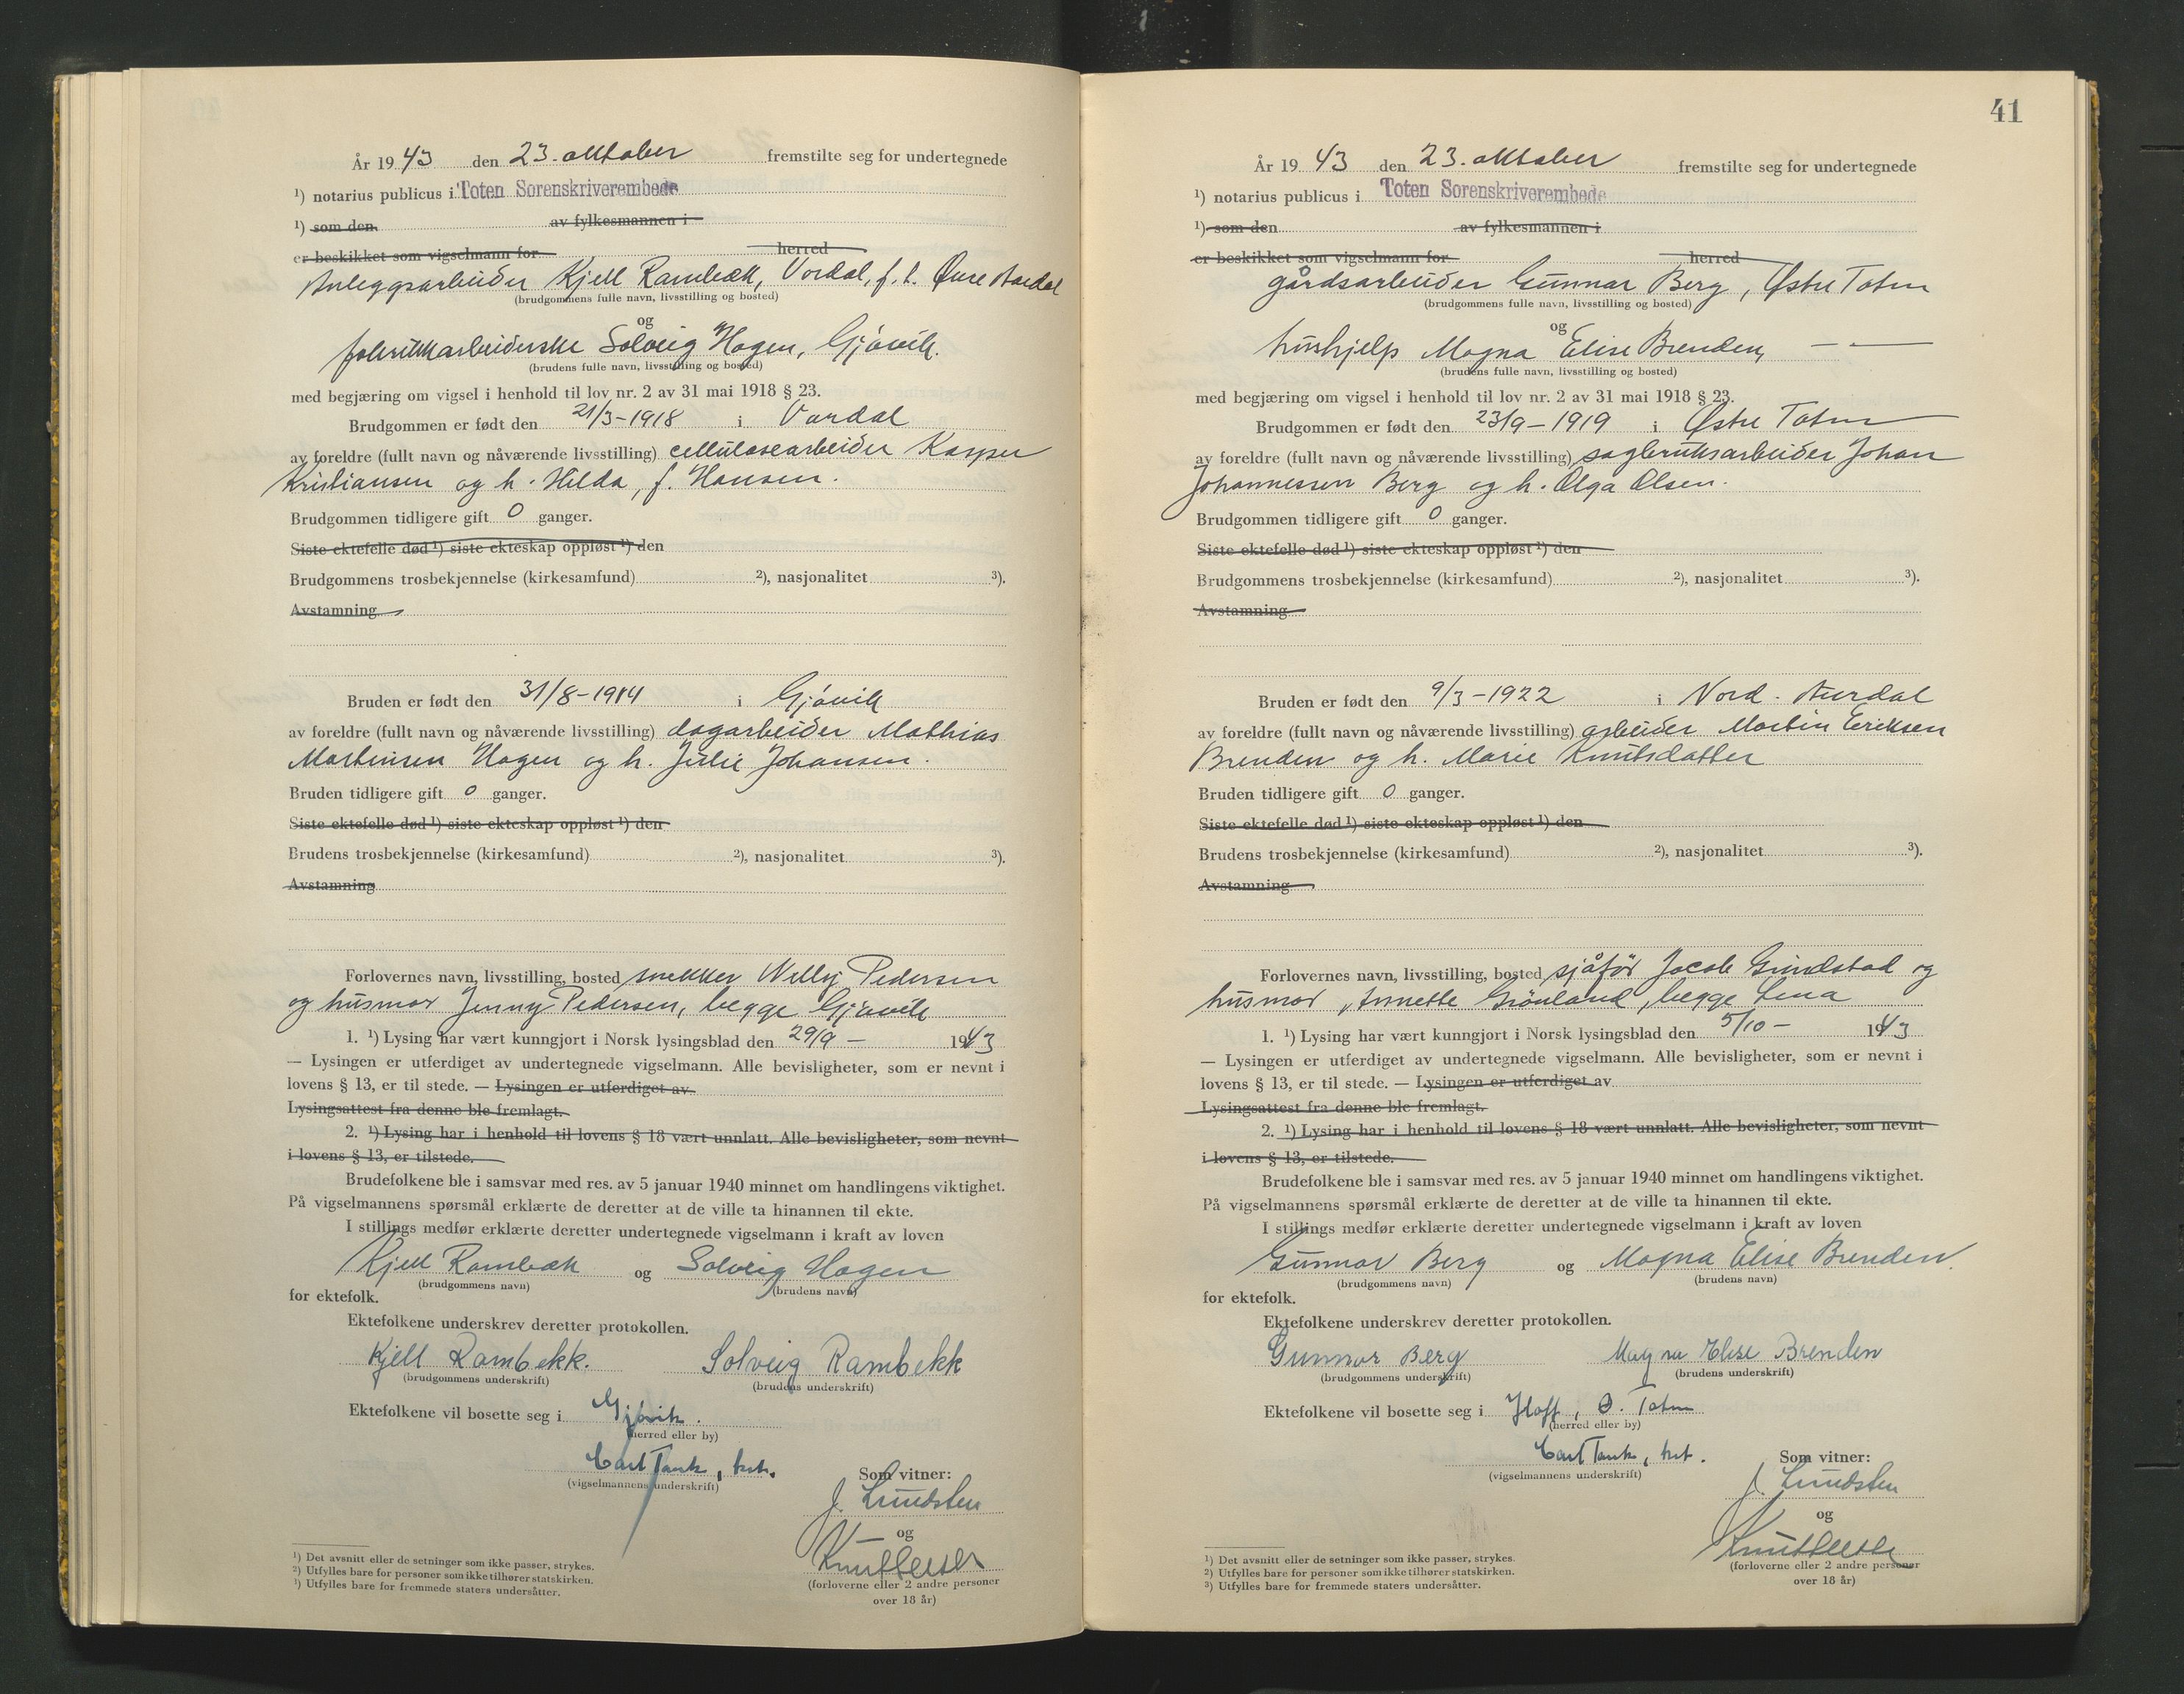 År 1943 den 23. oktober fremstilte seg for undertegnede
¹) notarius publicus i Toten Sorenskriverembede
¹) som den av fylkesmannen i
er beskikket som vigselmann for herred
Anleggsarbeider Kjell Rambæk, Vardal, f. t. Øvre Aardal
(brudgommens fulle navn, livsstilling og bosted)
og
fabrikkarbeiderske Solveig Hagen, Gjövik.
(brudens fulle navn, livsstilling og bosted)
med begjæring om vigsel i henhold til lov nr. 2 av 31 mai 1918 § 23.
Brudgommen er født den 21/3-1918 i Vardal
av foreldre (fullt navn og nåværende livsstilling) cellulosearbeider Kasper
Kristiansen og h. Hilda, f. Hansen.
Brudgommen tidligere gift 0 ganger.
Siste ektefelle død ¹) siste ekteskap oppløst ¹) den
Brudgommens trosbekjennelse (kirkesamfund) ²), nasjonalitet ³).
Avstamning
Bruden er født den 31/8-1914 i Gjövik
av foreldre (fullt navn og nåværende livsstilling) dagarbeider Mathias
Martinsen Hagen og h. Julie Johansen.
Bruden tidligere gift 0 ganger.
Siste ektefelle død ¹) siste ekteskap oppløst ¹) den
Brudens trosbekjennelse (kirkesamfund) ²), nasjonalitet ³).
Avstamning
Forlovernes navn, livsstilling, bosted snekker Willy Pedersen
og husmor Jenny Pedersen, begge Gjövik
1. ¹) Lysing har vært kunngjort i Norsk lysingsblad den 29/9 - 1943
— Lysingen er utferdiget av undertegnede vigselmann. Alle bevisligheter, som er nevnt i
lovens § 13, er til stede. — Lysingen er utferdiget av
Lysingsattest fra denne ble fremlagt.
2. ¹) Lysing har i henhold til lovens § 18 vært unnlatt. Alle bevisligheter, som nevnt
i lovens § 13, er tilstede.
Brudefolkene ble i samsvar med res. av 5 januar 1940 minnet om handlingens viktighet.
På vigselmannens spørsmål erklærte de deretter at de ville ta hinannen til ekte.
I stillings medfør erklærte deretter undertegnede vigselmann i kraft av loven
Kjell Rambæk og Solveig Hagen
(brudgommens navn) (brudens navn)
for ektefolk.
Ektefolkene underskrev deretter protokollen.
Kjell Rambekk. Solveig Rambekk
(brudgommens underskrift) (brudens underskrift)
Ektefolkene vil bosette seg i Gjövik.
(herred eller by)
Carl Tank, kst.
(vigselmannens underskrift)
Som vitner:
J. Lundsten
og
(forloverne eller 2 andre personer
over 18 år)
¹) Det avsnitt eller de setninger som ikke passer, strykes.
²) Utfylles bare for personer som ikke tilhører statskirken.
¹) Utfylles bare for fremmede staters undersåtter.
41
År 1943 den 23. oktober fremstilte seg for undertegnede
¹) notarius publicus i Toten Sorenskriverembede
¹) som den av fylkesmannen i
er beskikket som vigselmann for herred
gårdsarbeider Gunnar Berg, Østre Toten
(brudgommens fulle navn, livsstilling og bosted)
og
hushjelp Magna Elise Brenden, — —
(brudens fulle navn, livsstilling og bosted)
med begjæring om vigsel i henhold til lov nr. 2 av 31 mai 1918 § 23.
Brudgommen er født den 23/9-1919 i Østre Toten
av foreldre (fullt navn og nåværende livsstilling) sagbruksarbeider Johan
Johannessen Berg og h. Olga Olsen.
Brudgommen tidligere gift 0 ganger.
Siste ektefelle død ¹) siste ekteskap oppløst ¹) den
Brudgommens trosbekjennelse (kirkesamfund) ²), nasjonalitet ³).
Avstamning
Bruden er født den 9/3-1922 i Nord-Aurdal
av foreldre (fullt navn og nåværende livsstilling) arbeider Martin Eriksen
Brenden og h. Marie Knutsdatter
Bruden tidligere gift 0 ganger.
Siste ektefelle død ¹) siste ekteskap oppløst ¹) den
Brudens trosbekjennelse (kirkesamfund) ²), nasjonalitet ³).
Avstamning
Forlovernes navn, livsstilling, bosted sjåför Jacob Grindstad og
husmor Annette Grönland, begge Lena
1. ¹) Lysing har vært kunngjort i Norsk lysingsblad den 5/10 - 1943
— Lysingen er utferdiget av undertegnede vigselmann. Alle bevisligheter, som er nevnt i
lovens § 13, er til stede. — Lysingen er utferdiget av
Lysingsattest fra denne ble fremlagt.
2. ¹) Lysing har i henhold til lovens § 18 vært unnlatt. Alle bevisligheter, som nevnt
i lovens § 13, er tilstede.
Brudefolkene ble i samsvar med res. av 5 januar 1940 minnet om handlingens viktighet.
På vigselmannens spørsmål erklærte de deretter at de ville ta hinannen til ekte.
I stillings medfør erklærte deretter undertegnede vigselmann i kraft av loven
Gunnar Berg og Magna Elise Brenden.
(brudgommens navn) (brudens navn)
for ektefolk.
Ektefolkene underskrev deretter protokollen.
Gunnar Berg Magna Elise Brenden
(brudgommens underskrift) (brudens underskrift)
Ektefolkene vil bosette seg i Hoff, Ø. Toten
(herred eller by)
Carl Tank, kst.
(vigselmannens underskrift)
Som vitner:
J. Lundsten
og
(forloverne eller 2 andre personer
over 18 år)
¹) Det avsnitt eller de setninger som ikke passer, strykes.
²) Utfylles bare for personer som ikke tilhører statskirken.
³) Utfylles bare for fremmede staters undersåtter.